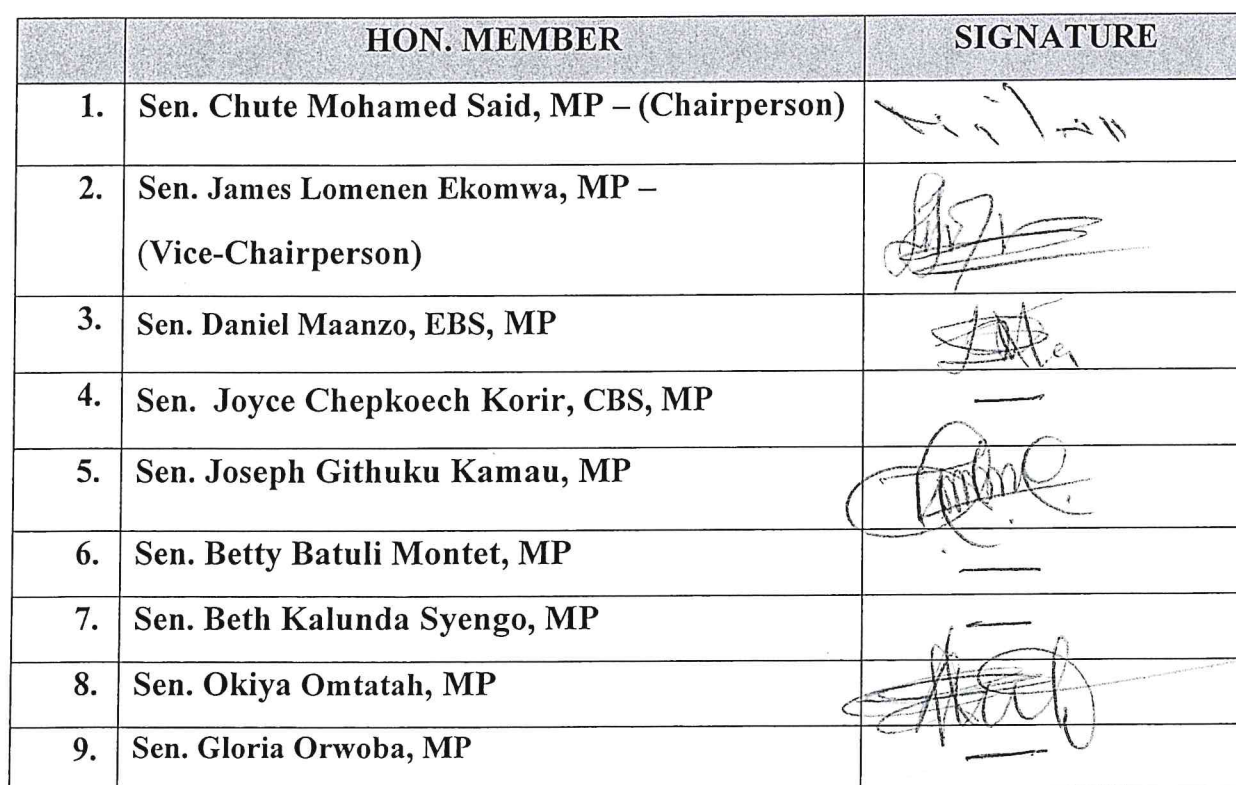 HON. MEMBER SIGNATURE
1. Sen. Chute Mohamed Said, MP – (Chairperson)
2. Sen. James Lomenen Ekomwa, MP –
(Vice-Chairperson)
3. Sen. Daniel Maanzo, EBS, MP
4. Sen. Joyce Chepkoech Korir, CBS, MP
5. Sen. Joseph Githuku Kamau, MP
6. Sen. Betty Batuli Montet, MP
7. Sen. Beth Kalunda Syengo, MP
8. Sen. Okiya Omtatah, MP
9. Sen. Gloria Orwoba, MP